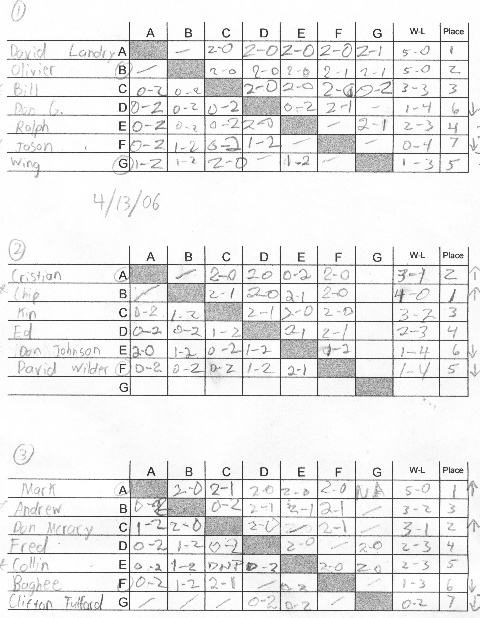 1
A B C D E F G W-L Place
David Landry A — 2-0 2-0 2-0 2-0 2-1 5-0 1
Olivier B / 2-0 2-0 2-0 2-1 2-1 5-0 2
Bill C 0-2 0-2 2-0 2-0 2-0 0-2 3-3 3
Don G. D 0-2 0-2 0-2 0-2 2-1 — 1-4 6 ↓
Ralph E 0-2 0-2 0-2 2-0 — 2-1 2-3 4
Jason F 0-2 1-2 0-2 1-2 — — 0-4 7 ↓
Wing G 1-2 1-2 2-0 — 1-2 — 1-3 5
4/13/06
2
A B C D E F G W-L Place
Cristian A / 2-0 2-0 0-2 2-0 3-1 2 ↑
Chip B / 2-1 2-0 2-1 2-0 4-0 1 ↑
Kin C 0-2 1-2 2-1 2-0 2-0 3-2 3
Ed D 0-2 0-2 1-2 2-1 2-1 2-3 4
Don Johnson E 2-0 1-2 0-2 1-2 1-2 1-4 6 ↓
David Wilder F 0-2 0-2 0-2 1-2 2-1 1-4 5 ↓
G
3
A B C D E F G W-L Place
Mark A 2-0 2-1 2-0 2-0 2-0 NA 5-0 1 ↑
Andrew B 0-2 0-2 2-1 2-1 2-1 / 3-2 3
Don McCrary C 1-2 2-0 2-0 — 2-1 / 3-1 2 ↑
Fred D 0-2 1-2 0-2 2-0 — 2-0 2-3 4
Collin E 0-2 1-2 DNF 0-2 2-0 2-0 2-3 5
Baghee F 0-2 1-2 2-1 / 0-2 / 1-3 6 ↓
Clifton Fulford G / / / 0-2 0-2 / 0-2 7 ↓